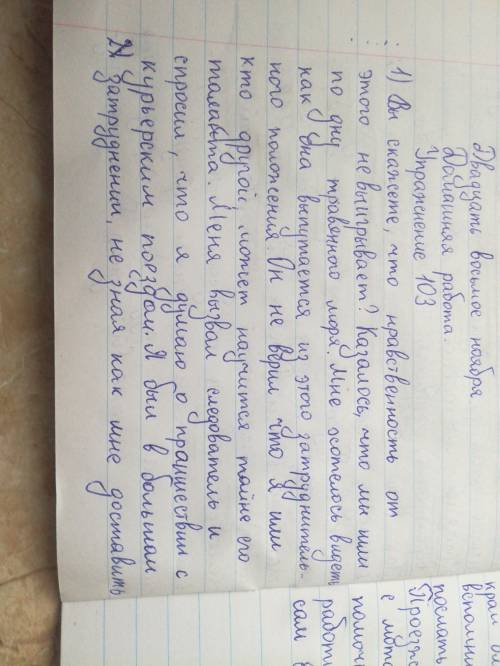 Двадцать восьмое ноября
Домашняя работа.
Упражнение 103
1) Вы скажете, что нравственность от
этого не выигрывает? Казалось, что мы шли
по дну травянного моря. Мне хотелось видеть
как она выпутается из этого затруднитель-
ного положения. Он не верил что я или
кто другой может научится тайне его
таланта. Меня вызвал следователь и
спросил, что я думаю о проишествии с
курьерским поездом. Я был в большом
затруднении, не зная как мне доставить
2)
край
вспомни
послать
Проезд
с мото
помоч
работ
сам